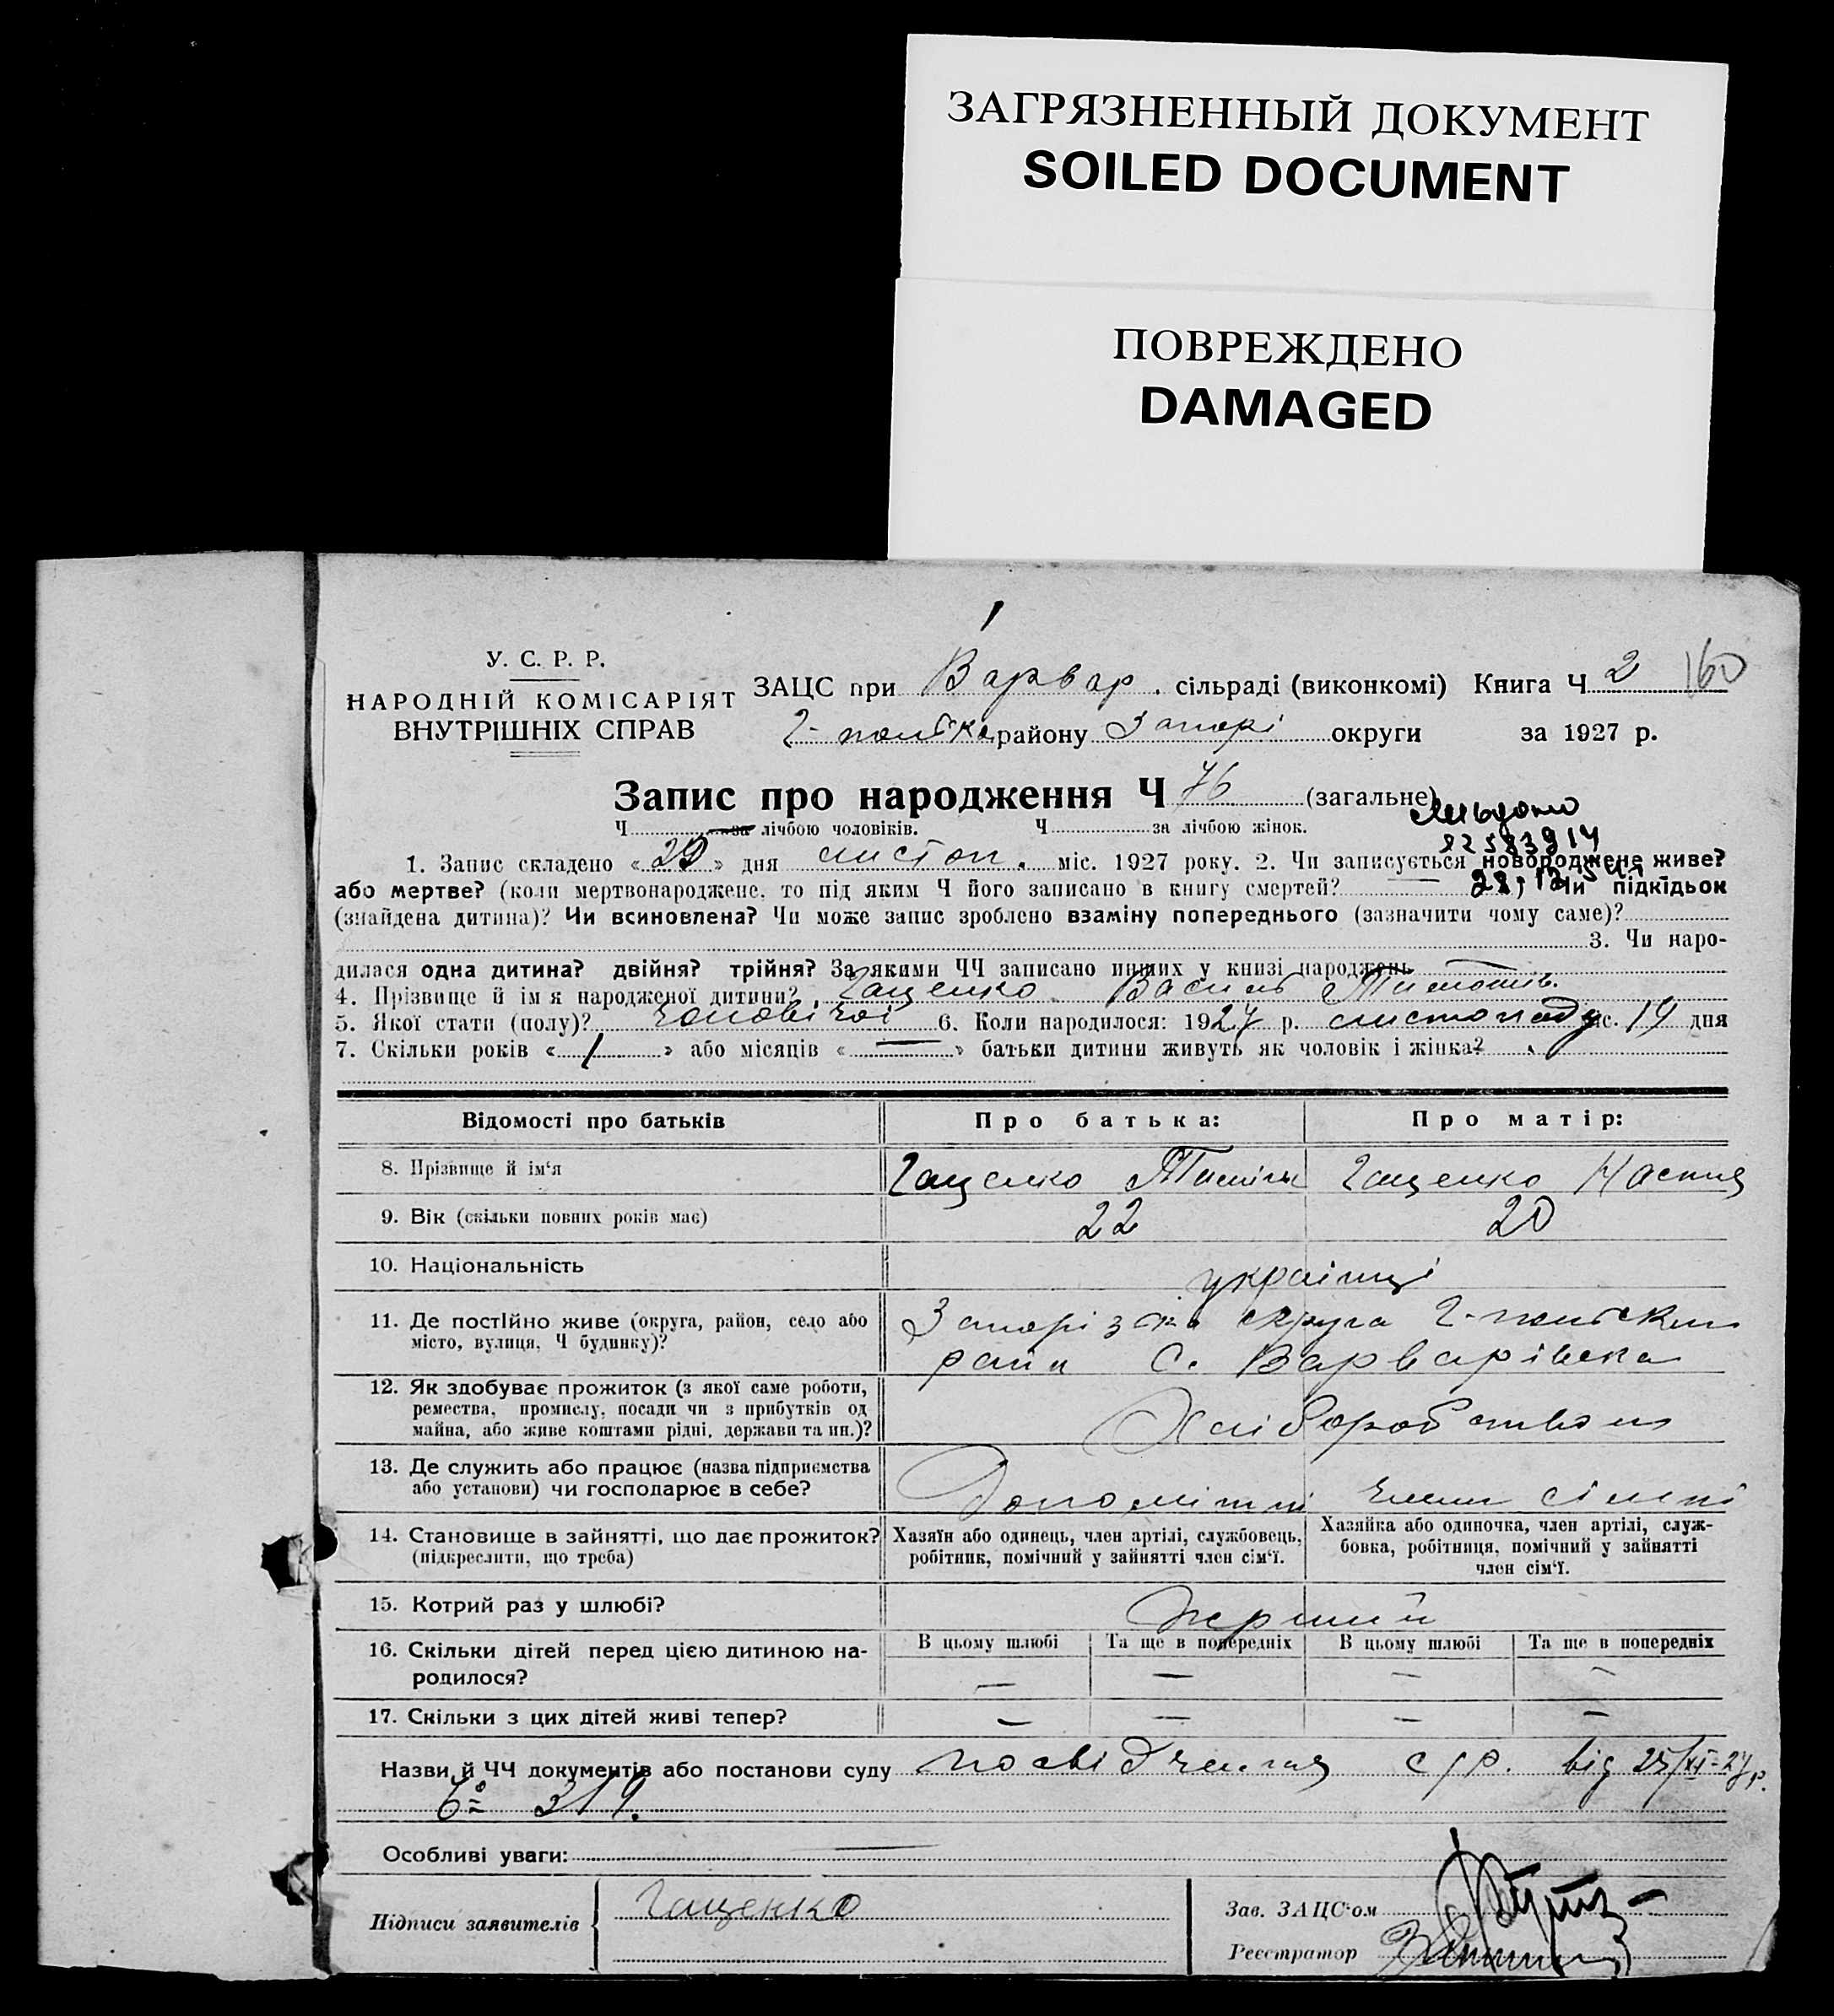 ЗАГРЯЗНЕННЫЙ ДОКУМЕНТ
SOILED DOCUMENT
ПОВРЕЖДЕНО
DAMAGED
У. С. Р. Р.
НАРОДНІЙ КОМІСАРІЯТ
ВНУТРІШНІХ СПРАВ
ЗАЦС при Варвар. сільраді (виконкомі) Книга Ч 2 160
району Запорі округи за 1927 р.
Запис про народження Ч 76 (загальне)
Ч за лічбою чоловіків. Ч за лічбою жінок.
1. Запис складено « » дня листоп. міс. 1927 року. 2. Чи записується новороджене живе?
або мертве? (коли мертвонароджене, то під яким Ч його записано в книгу смертей? Чи підкідьок
(знайдена дитина)? Чи всиновлена? Чи може запис зроблено взаміну попереднього (зазначити чому саме)?
3. Чи наро-
дилася одна дитина? двійня? трійня? За якими ЧЧ записано инших у книзі народжень —
4. Прізвище й ім я народженої дитини? Гащенко Василь
5. Якої стати (полу)? чоловічої 6. Коли народилося: 1927 р. листопаду міс. 19 дня
7. Скільки років « 1 » або місяців « — » батьки дитини живуть як чоловік і жінка?
Відомості про батьків Про батька: Про матір:
8. Прізвище й ім‘я Гащенко Гащенко Настя
9. Вік (скільки повних років має) 22 20
10. Національність українці
11. Де постІйно живе (округа, район, село або Запорізька округа
місто, вулиця, Ч будинку)? район С. Варварівка
12. Як здобуває прожиток (з якої саме роботи,
ремества, промислу, посади чи з прибутків од
майна, або живе коштами рідні, держави та ин.)? Хліборобством
13. Де служить або працює (назва підприємства
або установи) чи господарює в себе? член сімні
14. Становище в зайнятті, що дає прожиток? Хазяїн або одинець, член артілі, службовець, Хазяйка або одиночка, член артілі, служ-
(підкреслити, що треба) робітник, помічний у зайнятті член сім‘ї. бовка, робітниця, помічний у зайнятті
член сім‘ї.
15. Котрий раз у шлюбі? перший
16. Скільки дітей перед цією дитиною на- В цьому шлюбі Та ще в попередніх В цьому шлюбі Та ще в попередніх
родилося? — — — —
17. Скільки з цих дітей живі тепер? — — — —
Назви й ЧЧ документів або постанови суду посвідчення с/р. від
319.
Особливі уваги: —
Підписи заявителів Гащенко
Зав. ЗАЦС‘ом
Реєстратор